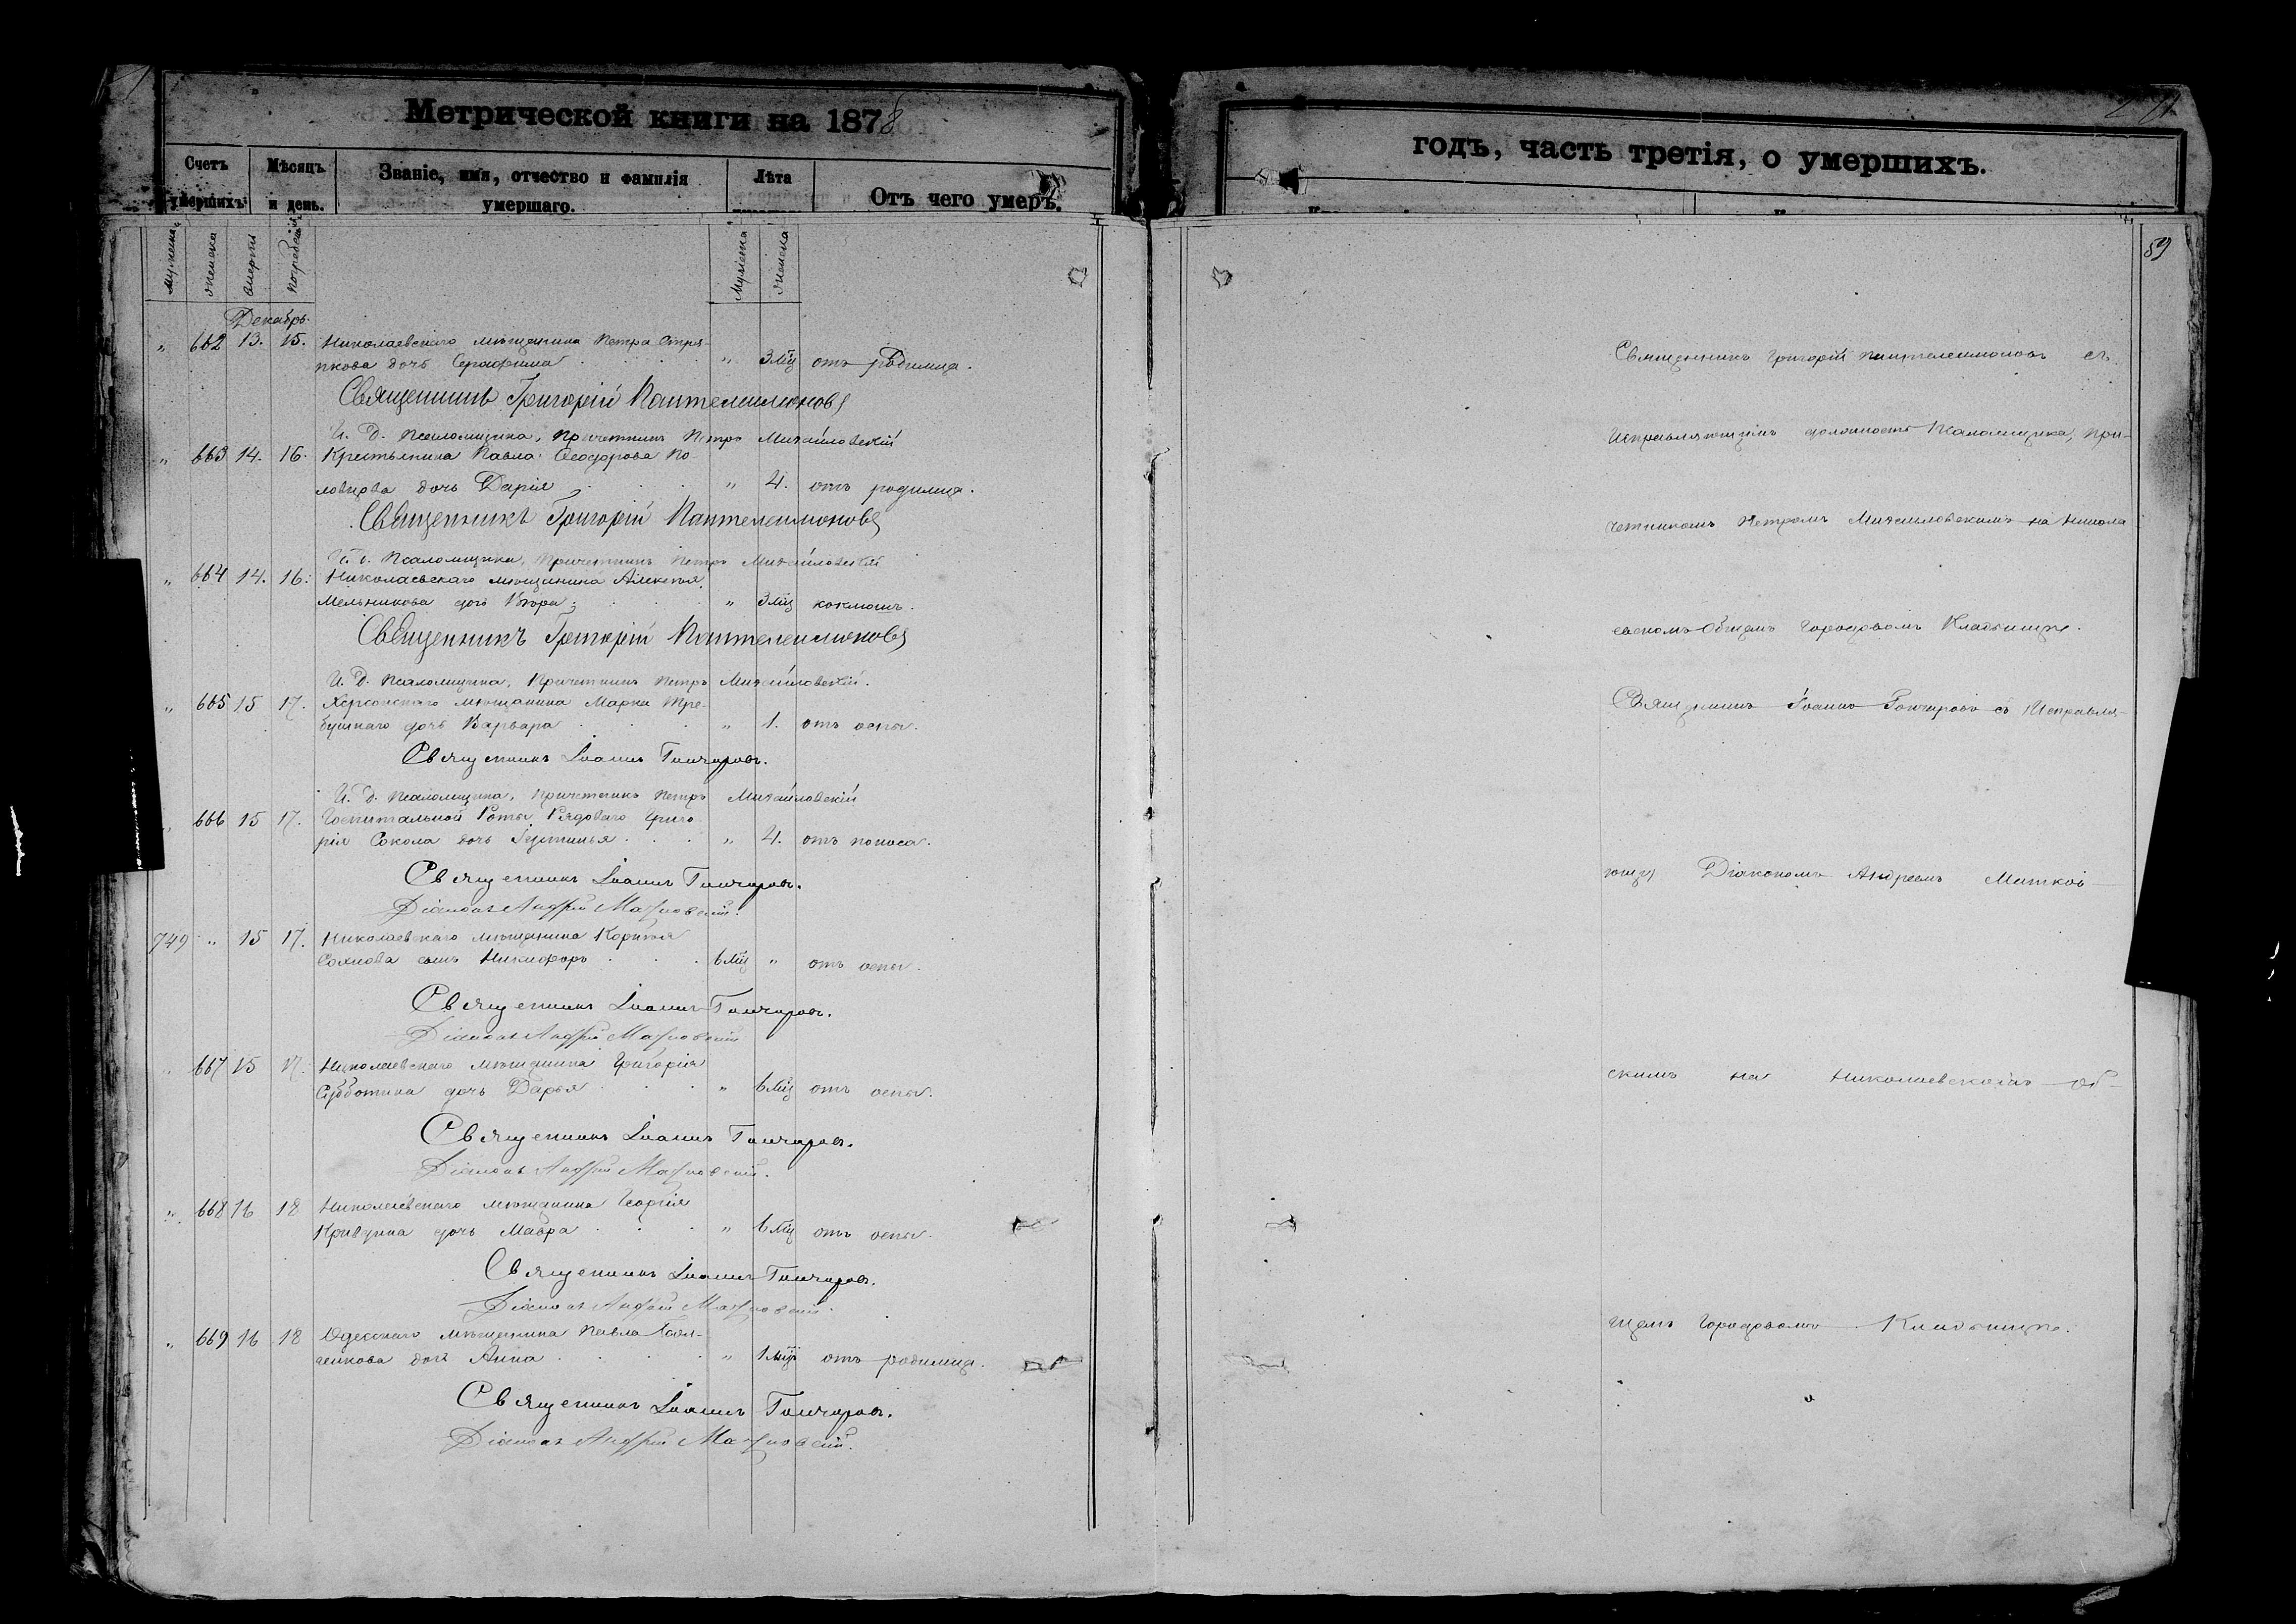 Метрической книги на 1878
Счетъ умершихъ.
Мѣсяцъ и день.
Званіе, имя, отчество и фамилія умершаго.
Лѣта
Отъ чего умеръ.
Мужеска
Женска
Смерти
Погребенія
Мужеска
Женска
Декабрь.
" 662 13. 15. Николаевскаго мѣщанина Петра
дочь Серафима " 3 мц отъ родимца.
Священникъ Григорій Пантелеимоновъ
И. д. Псаломщика, Причетникъ Петръ Михайловскій
" 663 14. 16. Крестьянина Павла Ѳеодорова По-
ловцова дочь Дарія " 4. отъ родимца.
Священникъ Григорій Пантелеимоновъ
И. д. Псаломщика, Причетникъ Петръ Михайловскій
" 664 14. 16. Николаевскаго мѣщанина Алексѣя
Мельникова дочь Вѣра " 3 мц коклюшъ.
Священникъ Григорій Пантелеимоновъ
И. д. Псаломщика, Причетникъ Петръ Михайловскій.
" 665 15 17. Херсонскаго мѣщанина Марка Тре-
бушнаго дочь Варвара " 1. отъ оспы.
Священникъ Іоаннъ Гончаровъ.
И. д. Псаломщика, Причетникъ Петръ Михайловскій
" 666 15 17. Госпитальной Роты Рядоваго Григо-
рія Сокола дочь Іустинья " 4. отъ поноса.
Священникъ Іоаннъ Гончаровъ.
Діаконъ Андрей
749 " 15 17. Николаевскаго мѣщанина Корнѣя
сынъ Никифоръ 6 мц " отъ оспы.
Священникъ Іоаннъ Гончаровъ.
Діаконъ Андрей
" 667 15 17. Николаевскаго мѣщанина Григорія
Субботина дочь Дарья " 6 мц отъ оспы.
Священникъ Іоаннъ Гончаровъ.
Діаконъ Андрей
" 668 16 18 Николаевскаго мѣщанина Георгія
дочь Мавра " 6 мц отъ оспы.
Священникъ Іоаннъ Гончаровъ.
Діаконъ Андрей
" 669 16 18 Одесскаго мѣщанина Павла
дочь Анна " 1 мц отъ родимца.
Священникъ Іоаннъ Гончаровъ.
Діаконъ Андрей
годъ, часть третія, о умершихъ.
89
Священникъ Григорій Пантелеимоновъ съ
Исправляющимъ должность Псаломщика, При-
четникомъ Петромъ Михайловскимъ на Никола
евскомъ Общемъ Городовомъ Кладбищѣ.
Священникъ Іоаннъ Гончаровъ съ Исправля-
ющ Діакономъ Андреемъ
скимъ на Николаевскомъ Об-
щемъ Городовомъ Кладбищѣ.